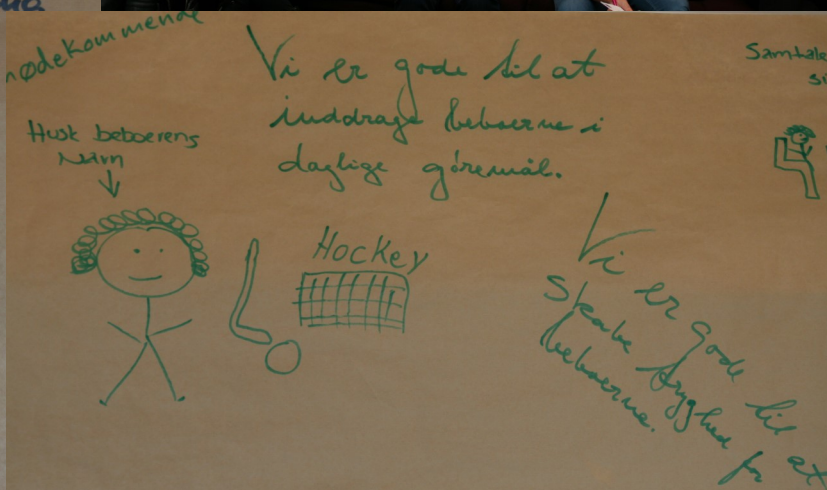 mødekommende
Vi er gode til at
inddrage beboerne i
daglige gøremål.
Samtale
Husk beboerens
Navn
Hockey
Vi er gode til at
skabe tryghed for
beboerne.